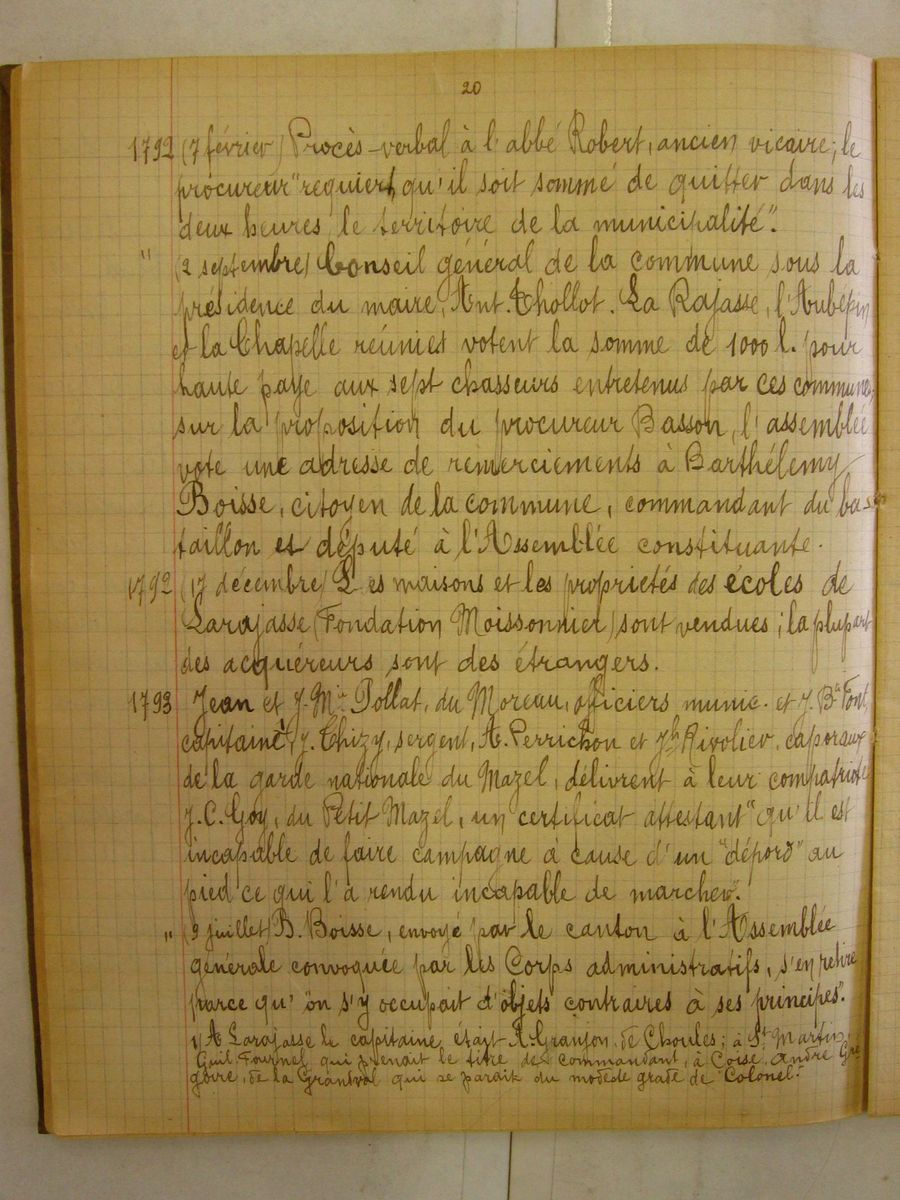 20
1792 (7 février) Procès-verbal à l'abbé Robert, ancien vicaire; le
procureur "requiert, qu'il soit sommé de quitter dans les
deux heures, le territoire de la municipalité".
" (2 septembre) Conseil général de la commune sous la
présidence du maire, Ant. Thollot. La Rajasse, l'Aubépin
et la Chapelle réunies votent la somme de 1000 l. pour
haute paye aux sept chasseurs entretenus par ces communes,
sur la proposition du procureur Basson, l'assemblée
vote une adresse de remerciements à Barthélemy
Boisse, citoyen de la commune, commandant du ba-
taillon et député à l'Assemblée constituante.
1792 (17 décembre) Les maisons et les propriétés des écoles de
Larajasse (Fondation Moissonnier) sont vendues; la plupart
des acquéreurs sont des étrangers.
1793 Jean et J. Mie Pollat, du Moreau, officiers munic. et J. Bte Font,
capitaine¹, J. Thizy, sergent, A. Perrichon et Jh Rivolier, caporaux
de la garde nationale du Mazel, délivrent à leur compatriote
J. C. Goy, du Petit Mazel, un certificat attestant "qu'il est
incapable de faire campagne à cause d'un "dépord" au
pied ce qui l'a rendu incapable de marcher".
" (9 juillet) B. Boisse, envoyé par le canton à l'Assemblée
générale convoquée par les Corps administratifs, s'en retire
parce qu' "on s'y occupait d'objets contraires à ses principes".
1) A Larajasse le capitaine était A. Granjon de Choules; à St Martin,
Guil. Fournel qui prenait le titre de commandant, à Coise, André Gré
goire, de la Grandval qui se parait du modeste grade de "Colonel".